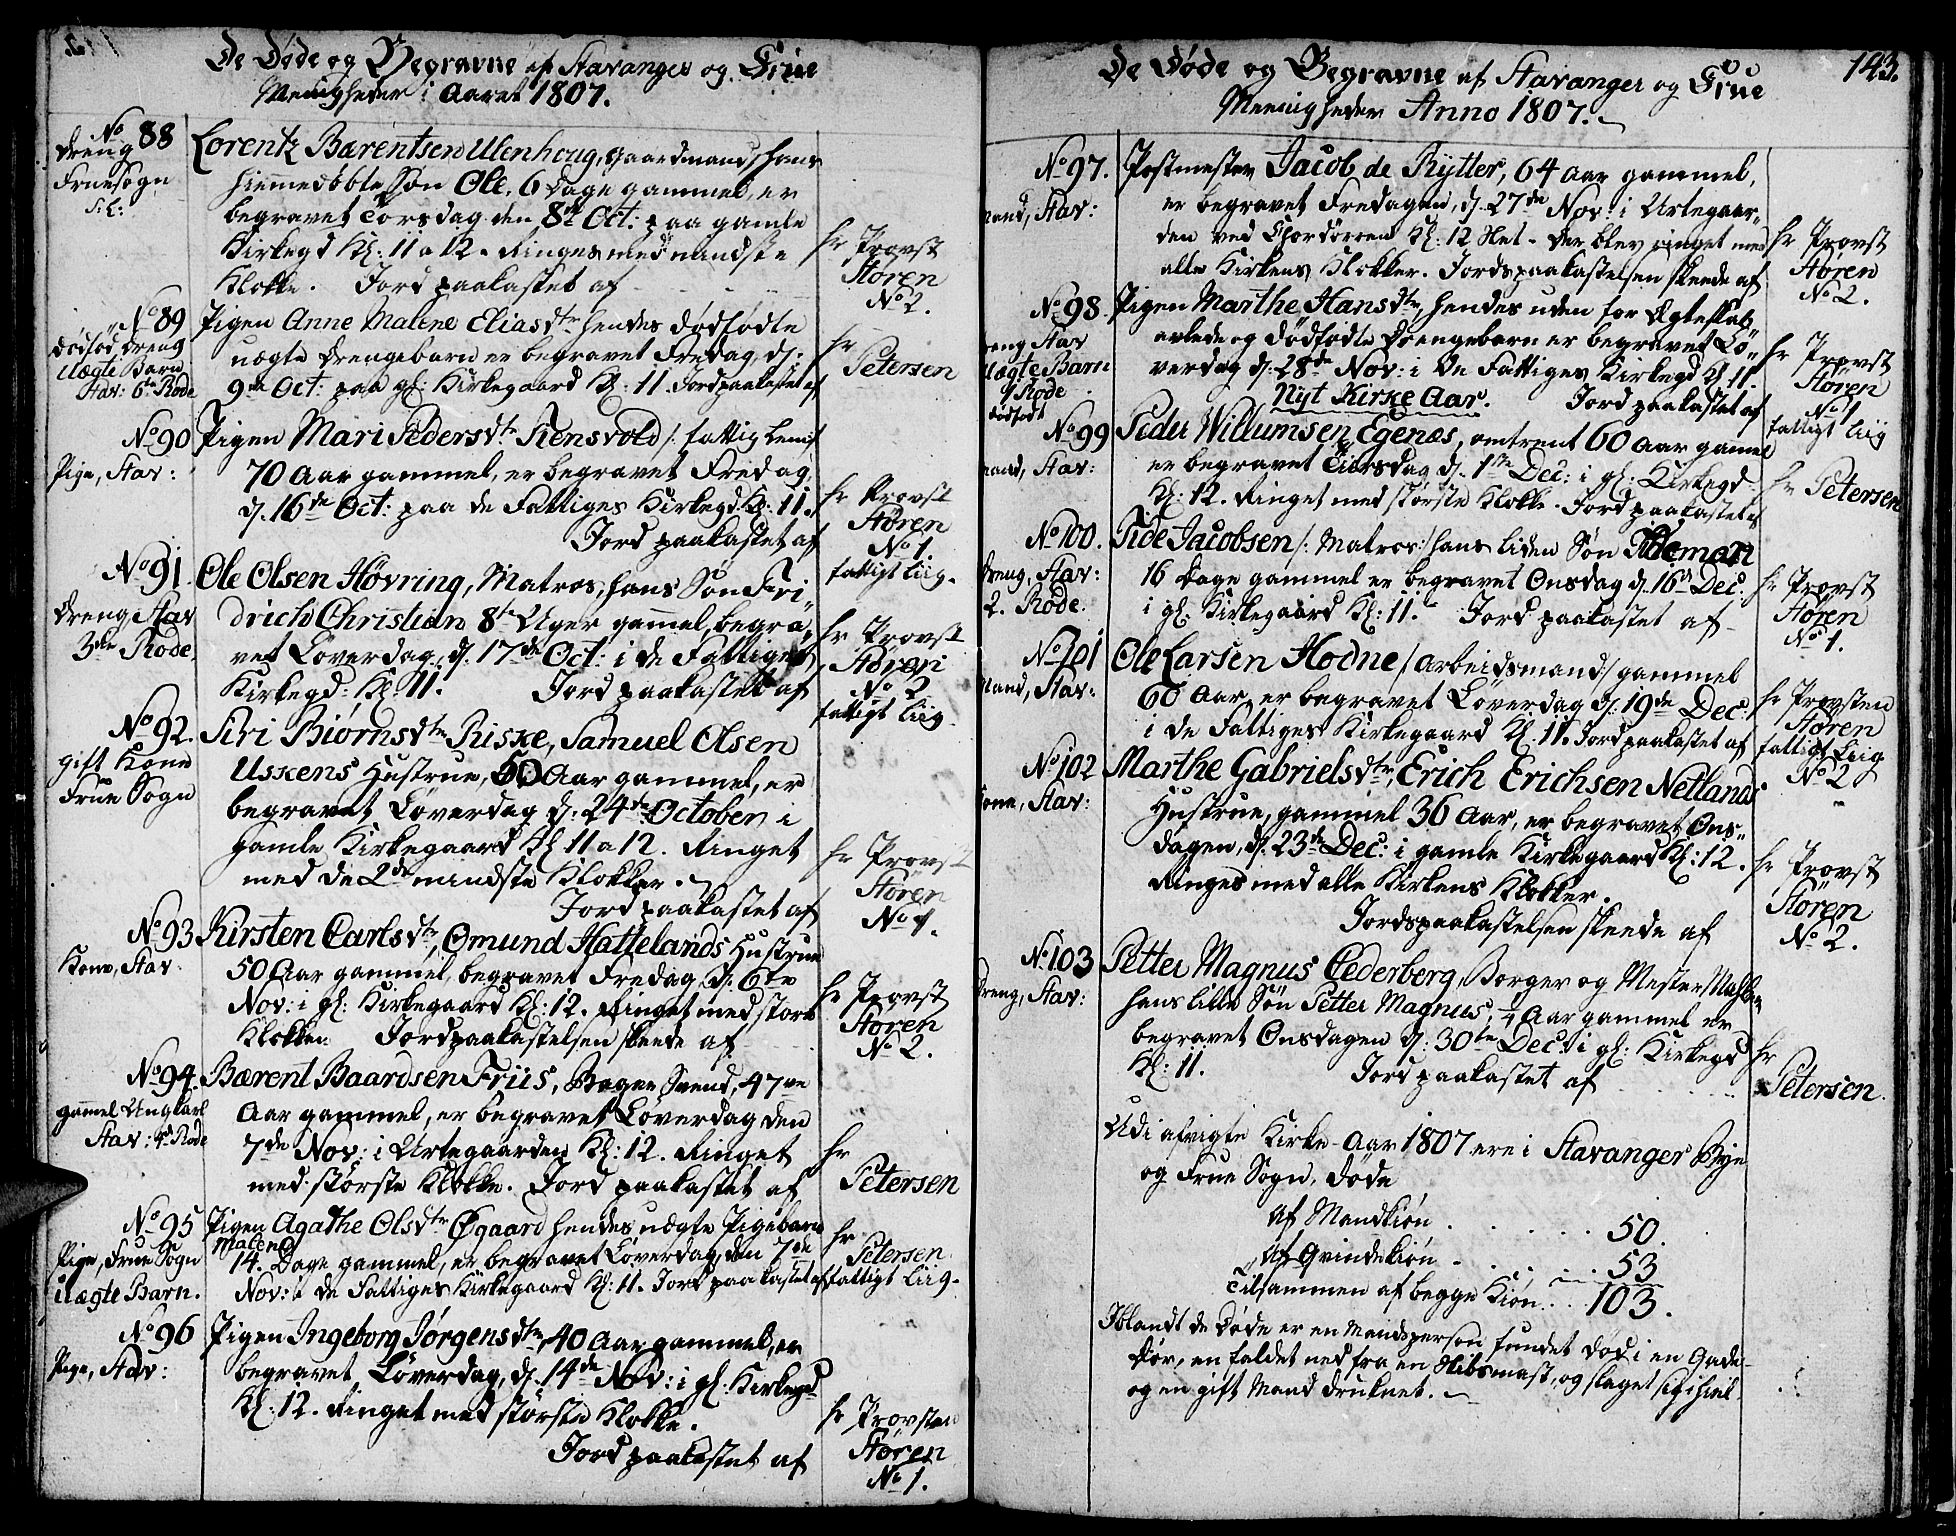 De Døde og Begravne af Stavanger og Frue
Menigheder i Aaret 1807.
No 88
Dreng
Frue Sogn
Lorentz Bærentsen Ulenhoug, Gaardmand, hans
hiemedøbte Søn Ole, 6 Dage gammel, er
begravet Torsdag den 8de Oct: paa gamle
Kirkegd Kl: 11 a 12. Ringes med mindste
Klokke. Jord paakastet af
hr Provst
Støren
No 2.
No 89
dødfød Dreng
Uægte Barn
Stav: 6te Rode
Pigen Anne Malene Eliasdtr hendes dødfødte
uægte Drengebarn er begravet Fredag, d:
9de Oct: paa gl: Kirkegaard Kl: 11. Jord paakastet af
hr
Petersen
No 90
Pige, Stav:
Pigen Mari Pedersdtr Stensvold /: fattig Lem :/
70 Aar gammel, er begravet Fredag
d. 16de Oct: paa de Fattiges Kirkegd: Kl: 11.
Jord paakastet af
hr Provst
Støren
No 1.
fattigt Liig.
No 91.
Dreng Stav
3die Rode.
Ole Olsen Høvring, Matros, hans Søn Fri„
drich Christian 8te Uger gamel, begra„
vet Løverdag, d. 17de Oct: i de Fattiges
Kirkegd: Kl: 11. Jord paakastet af
hr Provst
Støren
No 2
fattigt Liig.
No 92.
gift Kone
Frue Sogn
Siri Biørnsdtr Riske, Samuel Olsen
Uskens Hustrue, 50 Aar gammel, er
begravet Løverdag d: 24de October i
gamle Kirkegaard Kl 11 a 12. Ringet
med de 2de mindste Klokker.
Jord paakastet af
hr Provst
Støren
No 1.
No 93
Kone, Stav:
Kirsten Carlsdtr, Omund Hattelands Hustrue
50 Aar gammel, begravet Fredag d. 6te
Nov: i gl: Kirkegaard Kl: 12. Ringet med store
Klokken Jordpaakastelsen skeede af
hr Provst
Støren
No 2.
No 94.
gamel Ungkarl
Stav: 4de Rode
Bærent Baardsen Friis, Bager Svend, 47ve
Aar gammel, er begravet Løverdag den
7de Nov: i Urtegaarden Kl: 12. Ringet
med største Klokke. Jord paakastet af
hr
Petersen
No 95
Pige, Frue Sogn
Uægte Barn.
Pigen Agathe Olsdtr Øgaard hendes uægte Pigebarn
Malene
14. Dage gammel, er begravet Løverdag den 7de
Nov: i de Fattiges Kirkegaard Kl: 11. Jord paakastet af
hr
Petersen
fattigt Liig.
No 96
Pige, Stav:
Pigen Ingeborg Jørgensdtr, 40 Aar gammel, er
begravet, Løverdag, d. 14de Nov: i gl: Kirkegd
Kl: 12. Ringet med største Klokke.
Jord paakastet af
hr Provsten
Støren
No 1.
143.
De Døde og Begravne af Stavanger og Frue
Menigheder Anno 1807.
No 97.
Mand, Stav:
Postmester Jacob de Rytter, 64 Aar gammel,
er begravet Fredagen, d. 27de Nov: i Urtegaar„
den ved Chordøren Kl: 12 Slet. Der blev ringet med
alle Kirkens Klokker. Jordspaakastelsen skeede af
hr Provst
Støren
No 2.
No 98.
Dreng Stav
Uægte Barn
Rode
dødfødt
Pigen Marthe Hansdtr, hendes uden for Ægteskab
avlede og dødfødte Drengebarn er begravet Lø„
verdag d: 28de Nov: i De Fattiges Kirkegd Kl 11.
Jord paakastet af
hr Provst
Støren
No 1
fattigt Liig
Nyt Kirke Aar.
No 99
Mand, Stav:
Peder Willumsen Egenæs, omtrent 60 Aar gamel
er begravet Tiirsdag d. 1ste Dec: i gl: Kirkegd
Kl: 12. Ringet med største Klokke. Jord paakastet af
hr Petersen
No 100.
Dreng, Stav:
2. Rode.
Tide Jacobsen /: Matros :/ hans liden Søn Tideman
16 Dage gammel er begravet Onsdag d. 16de Dec:
i gl: Kirkegaard Kl: 11. Jord paakastet af
hr Provst
Støren
No 1.
No 101
Mand, Stav:
Ole Larsen Hodne /: Arbeidsmand :/ gammel
60 Aar, er begravet Løverdag d. 19de Dec:
i de Fattiges Kirkegaard Kl. 11. Jord paakastet af
hr Provsten
Støren
fattigt Liig
No 2
No 102
Kone, Stav:
Marthe Gabrielsdtr, Erich Erichsen Netlands
Hustrue, gammel 36 Aar, er begravet Ons„
dagen, d. 23de Dec: i gamle Kirkegaard Kl: 12.
Ringes med alle Kirkens Klokker.
Jordspaakastelsen skeede af
hr Provst
Støren
No 2.
No 103
Dreng, Stav:
Petter Magnus Cederberg, Borger og Mester Mahler
hans lille Søn Petter Magnus, 1/4 Aar gammel er
begravet Onsdagen d. 30te Dec: i gl: Kirkegd
Kl: 11. Jord paakastet af
hr
Petersen.
Udi afvigte Kirke-Aar 1807 ere i Stavanger Bye
og Frue Sogn, døde
af Mandkiøn . . . . . . 50.
„ af Qvindekiøn . . . . . 53
Tilsammen af begge Kiøn . . . 103.
Iblandt de Døde er en Mandsperson fundet død i en Gade-
Dør, en faldet ned fra en Skibsmast, og slaget sig ihiel.
og en gift Mand druknet.